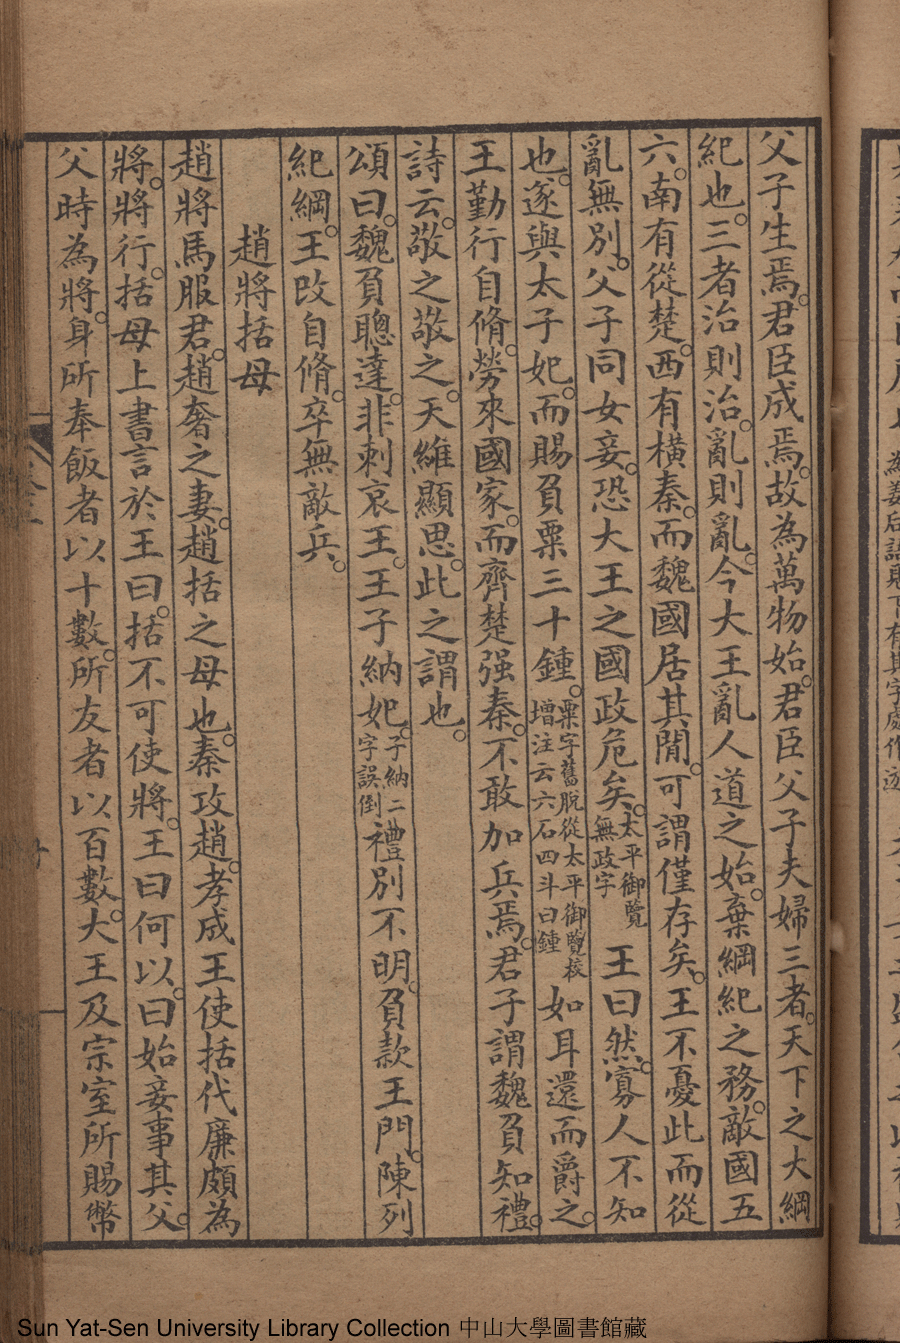 父子生焉。君臣成焉。故為萬物始。君臣父子夫婦三者。天下之大綱
紀也。三者治則治。亂則亂。今大王亂人道之始。棄綱紀之務。敵國五
六。南有從楚。西有橫秦。而魏國居其閒。可謂僅存矣。王不憂此而從
亂無別。父子同女妾。恐大王之國政危矣。太平御覽無政字王曰然。寡人不知
也。遂與太子妃。而賜負粟三十鍾。粟字舊脫從太平御覽校增注云六石四斗曰鍾如耳還而爵之。
王勤行自脩。勞來國家。而齊楚强秦。不敢加兵焉。君子謂魏負知禮。
詩云。敬之敬之。天維顯思。此之謂也。
頌曰。魏負聰達。非刺哀王。王子納妃。子納二字誤倒禮別不明。負款王門。陳列
紀綱。王改自脩。卒無敵兵。
趙將括母
趙將馬服君。趙奢之妻。趙括之母也。秦攻趙。孝成王使括代廉頗為
將。將行。括母上書言於王曰。括不可使將。王曰何以。曰始妾事其父。
父時為將。身所奉飯者以十數。所友者以百數。大王及宗室所賜幣
Sun Yat-Sen University Library Collection 中山大學圖書館藏